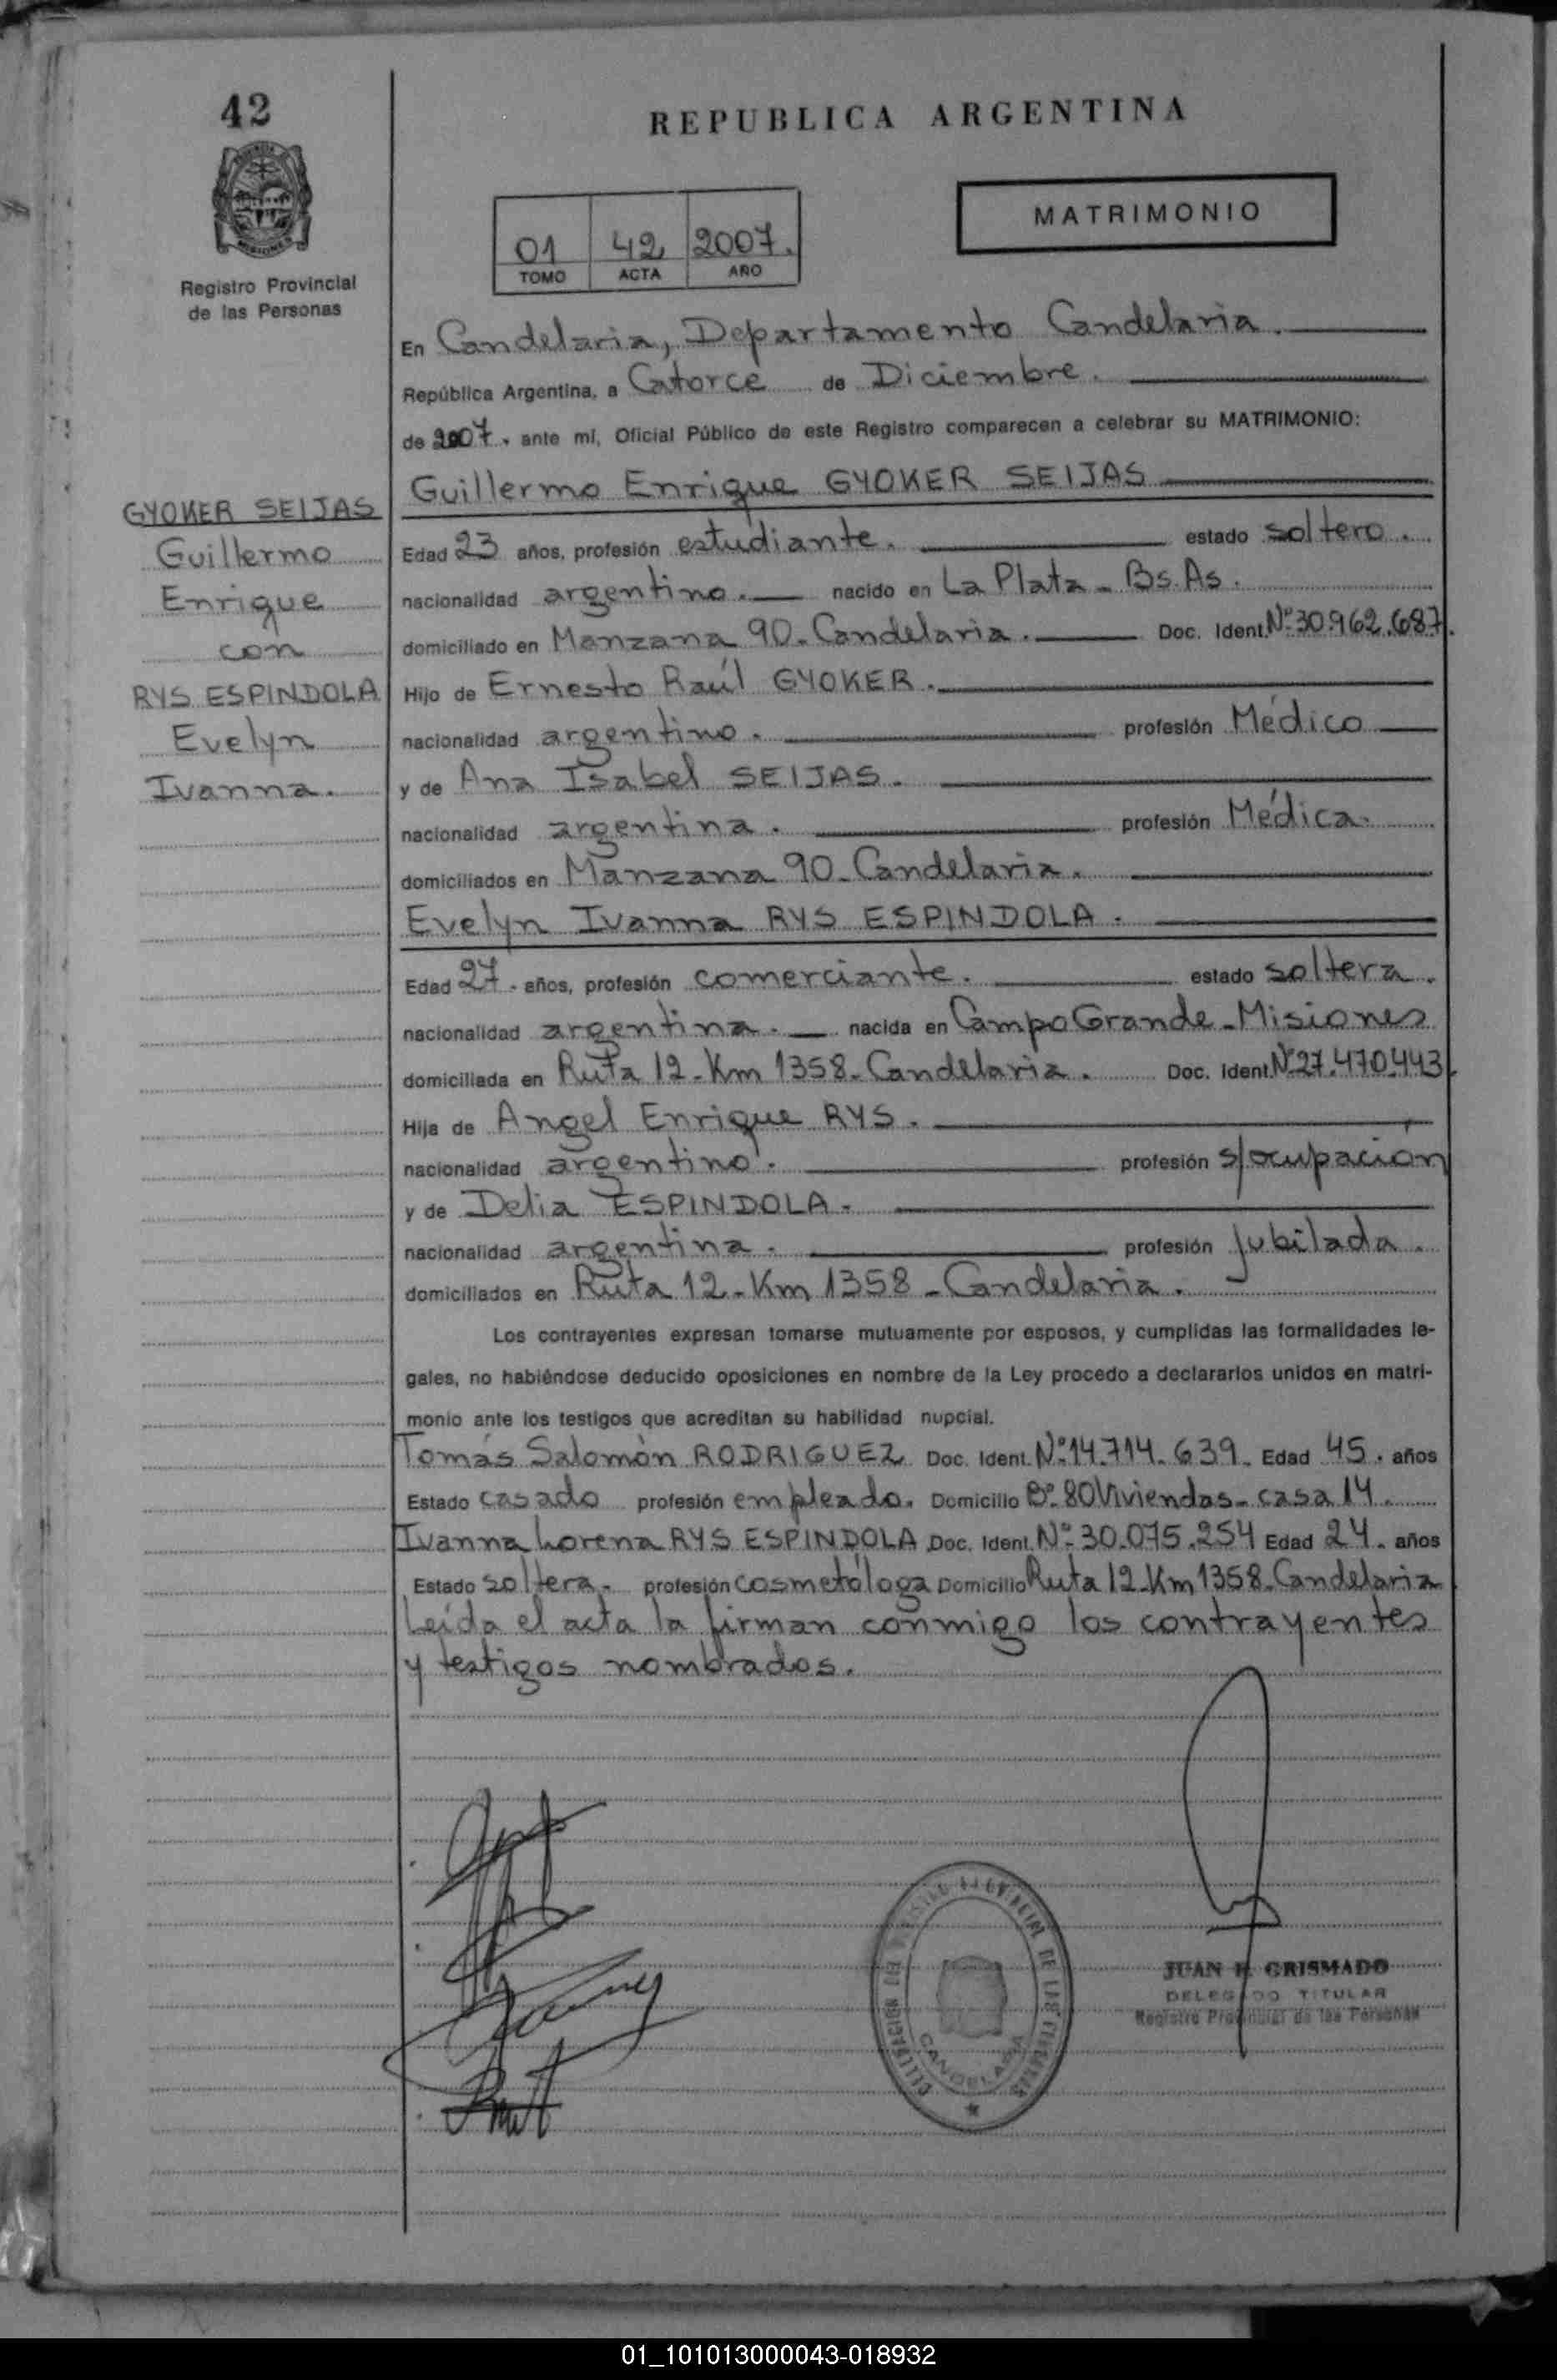 42
REPUBLICA ARGENTINA
MATRIMONIO
01 42 2007.
TOMO ACTA AÑO
Registro Provincial
de las Personas
En Candelaria, Departamento Candelaria.
República Argentina, a Catorce de Diciembre.
de 2007. ante mí, Oficial Público de este Registro comparecen a celebrar su MATRIMONIO:
Guillermo Enrique GYOKER SEIJAS
GYOKER SEIJAS
Guillermo
Enrique
con
RYS ESPINDOLA
Evelyn
Ivanna.
Edad 23 años, profesión estudiante. estado soltero.
nacionalidad argentino. nacido en La Plata - Bs. As.
domiciliado en Manzana 90 - Candelaria. Doc. Ident. Nº 30.962.687.
Hijo de Ernesto Raúl GYOKER.
nacionalidad argentino. profesión Médico
y de Ana Isabel SEIJAS.
nacionalidad argentina. profesión Médica.
domiciliados en Manzana 90 - Candelaria.
Evelyn Ivanna RYS ESPINDOLA.
Edad 27. años, profesión comerciante. estado soltera.
nacionalidad argentina. nacida en Campo Grande - Misiones
domiciliada en Ruta 12 - Km 1358 - Candelaria. Doc. Ident. Nº 27.470.443.
Hija de Angel Enrique RYS.
nacionalidad argentino. profesión s/ocupación
y de Delia ESPINDOLA.
nacionalidad argentina. profesión Jubilada.
domiciliados en Ruta 12 - Km 1358 - Candelaria.
Los contrayentes expresan tomarse mutuamente por esposos, y cumplidas las formalidades le-
gales, no habiéndose deducido oposiciones en nombre de la Ley procedo a declararlos unidos en matri-
monio ante los testigos que acreditan su habilidad nupcial.
Tomás Salomón RODRIGUEZ Doc. Ident. Nº 14.714.639. Edad 45. años
Estado casado profesión empleado. Domicilio Bº 80 Viviendas - casa 14.
Ivanna Lorena RYS ESPINDOLA Doc. Ident. Nº 30.075.254 Edad 24. años
Estado soltera. profesión cosmetóloga Domicilio Ruta 12 - Km 1358 - Candelaria
Leída el acta la firman conmigo los contrayentes
y testigos nombrados.
JUAN GRISMADO
DELEGADO TITULAR
Registro Provincial de las Personas
CANDELARIA
01_101013000043-018932